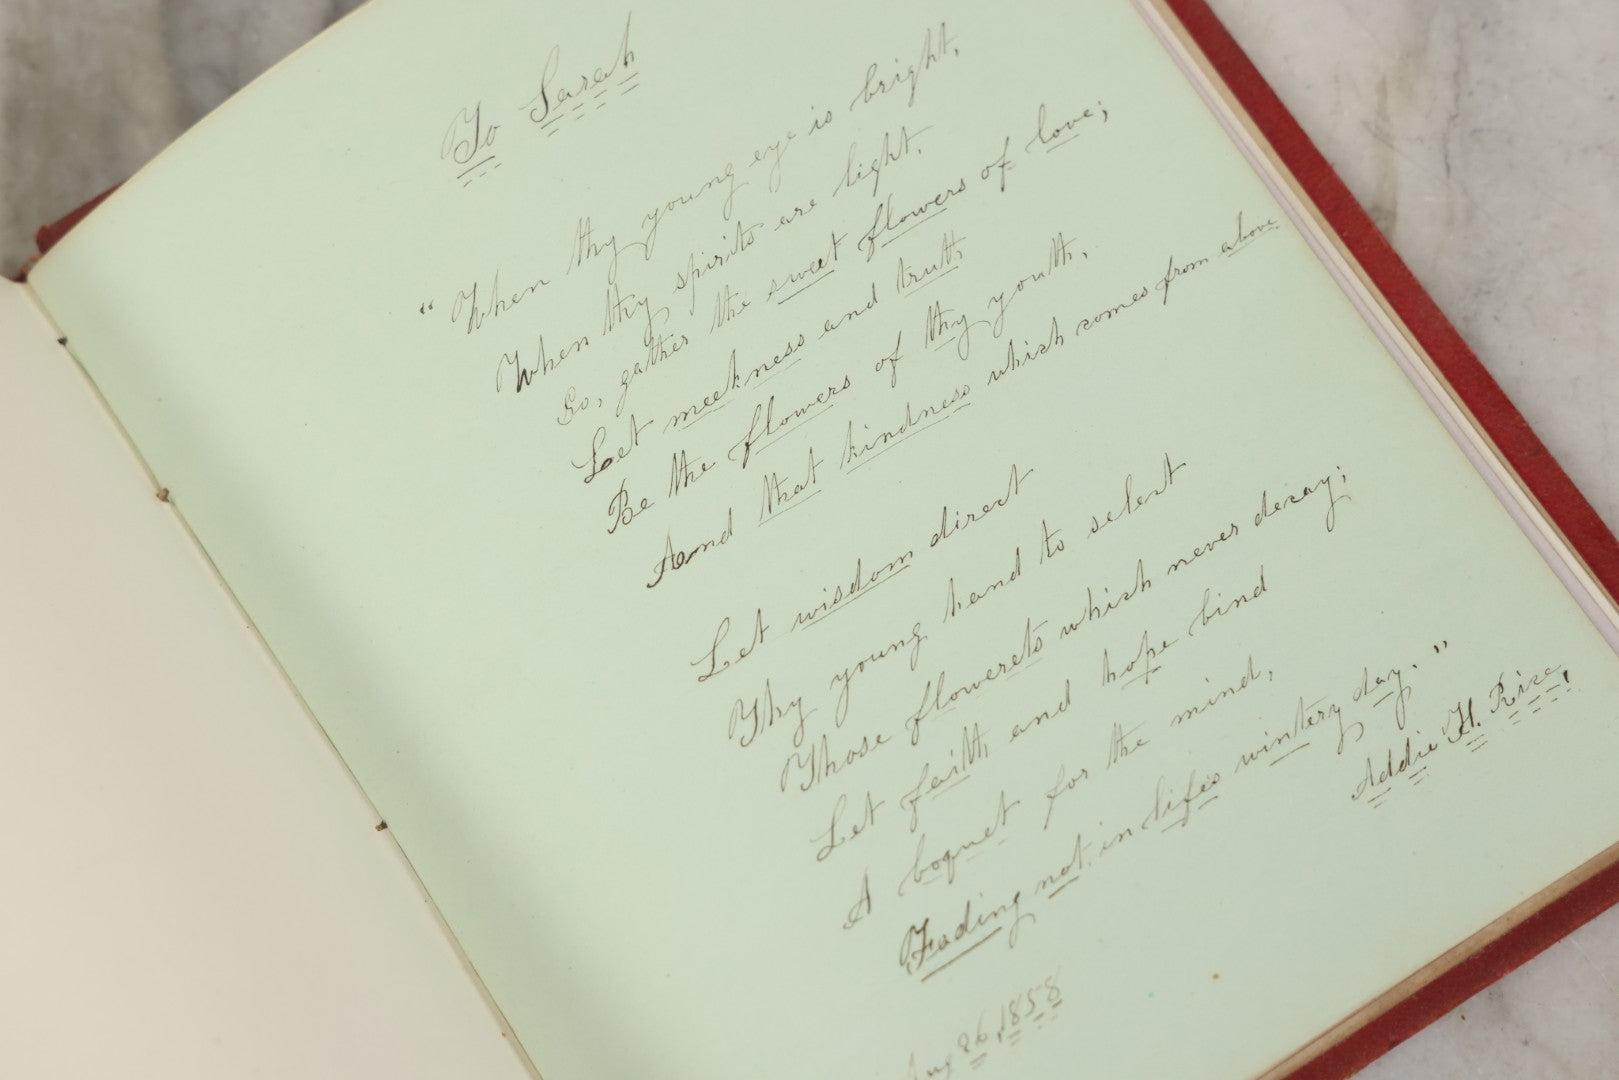 To Sarah
“When thy young eye is bright,
When thy spirits are light,
Go, gather the sweet flowers of love;
Let meekness and truth
Be the flowers of thy youth,
And that kindness which comes from above.
Let wisdom direct
Thy young hand to select
Those flowerets which never decay;
Let faith and hope bind
A boquet for the mind,
Fading not in life's wintery day.”
Addie H. Rice,
Aug 26, 1858